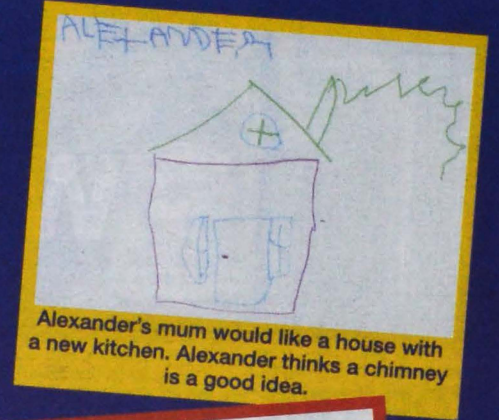 ALEXANDER
Alexander's mum would like a house with
a new kitchen. Alexander thinks a chimney
is a good idea.